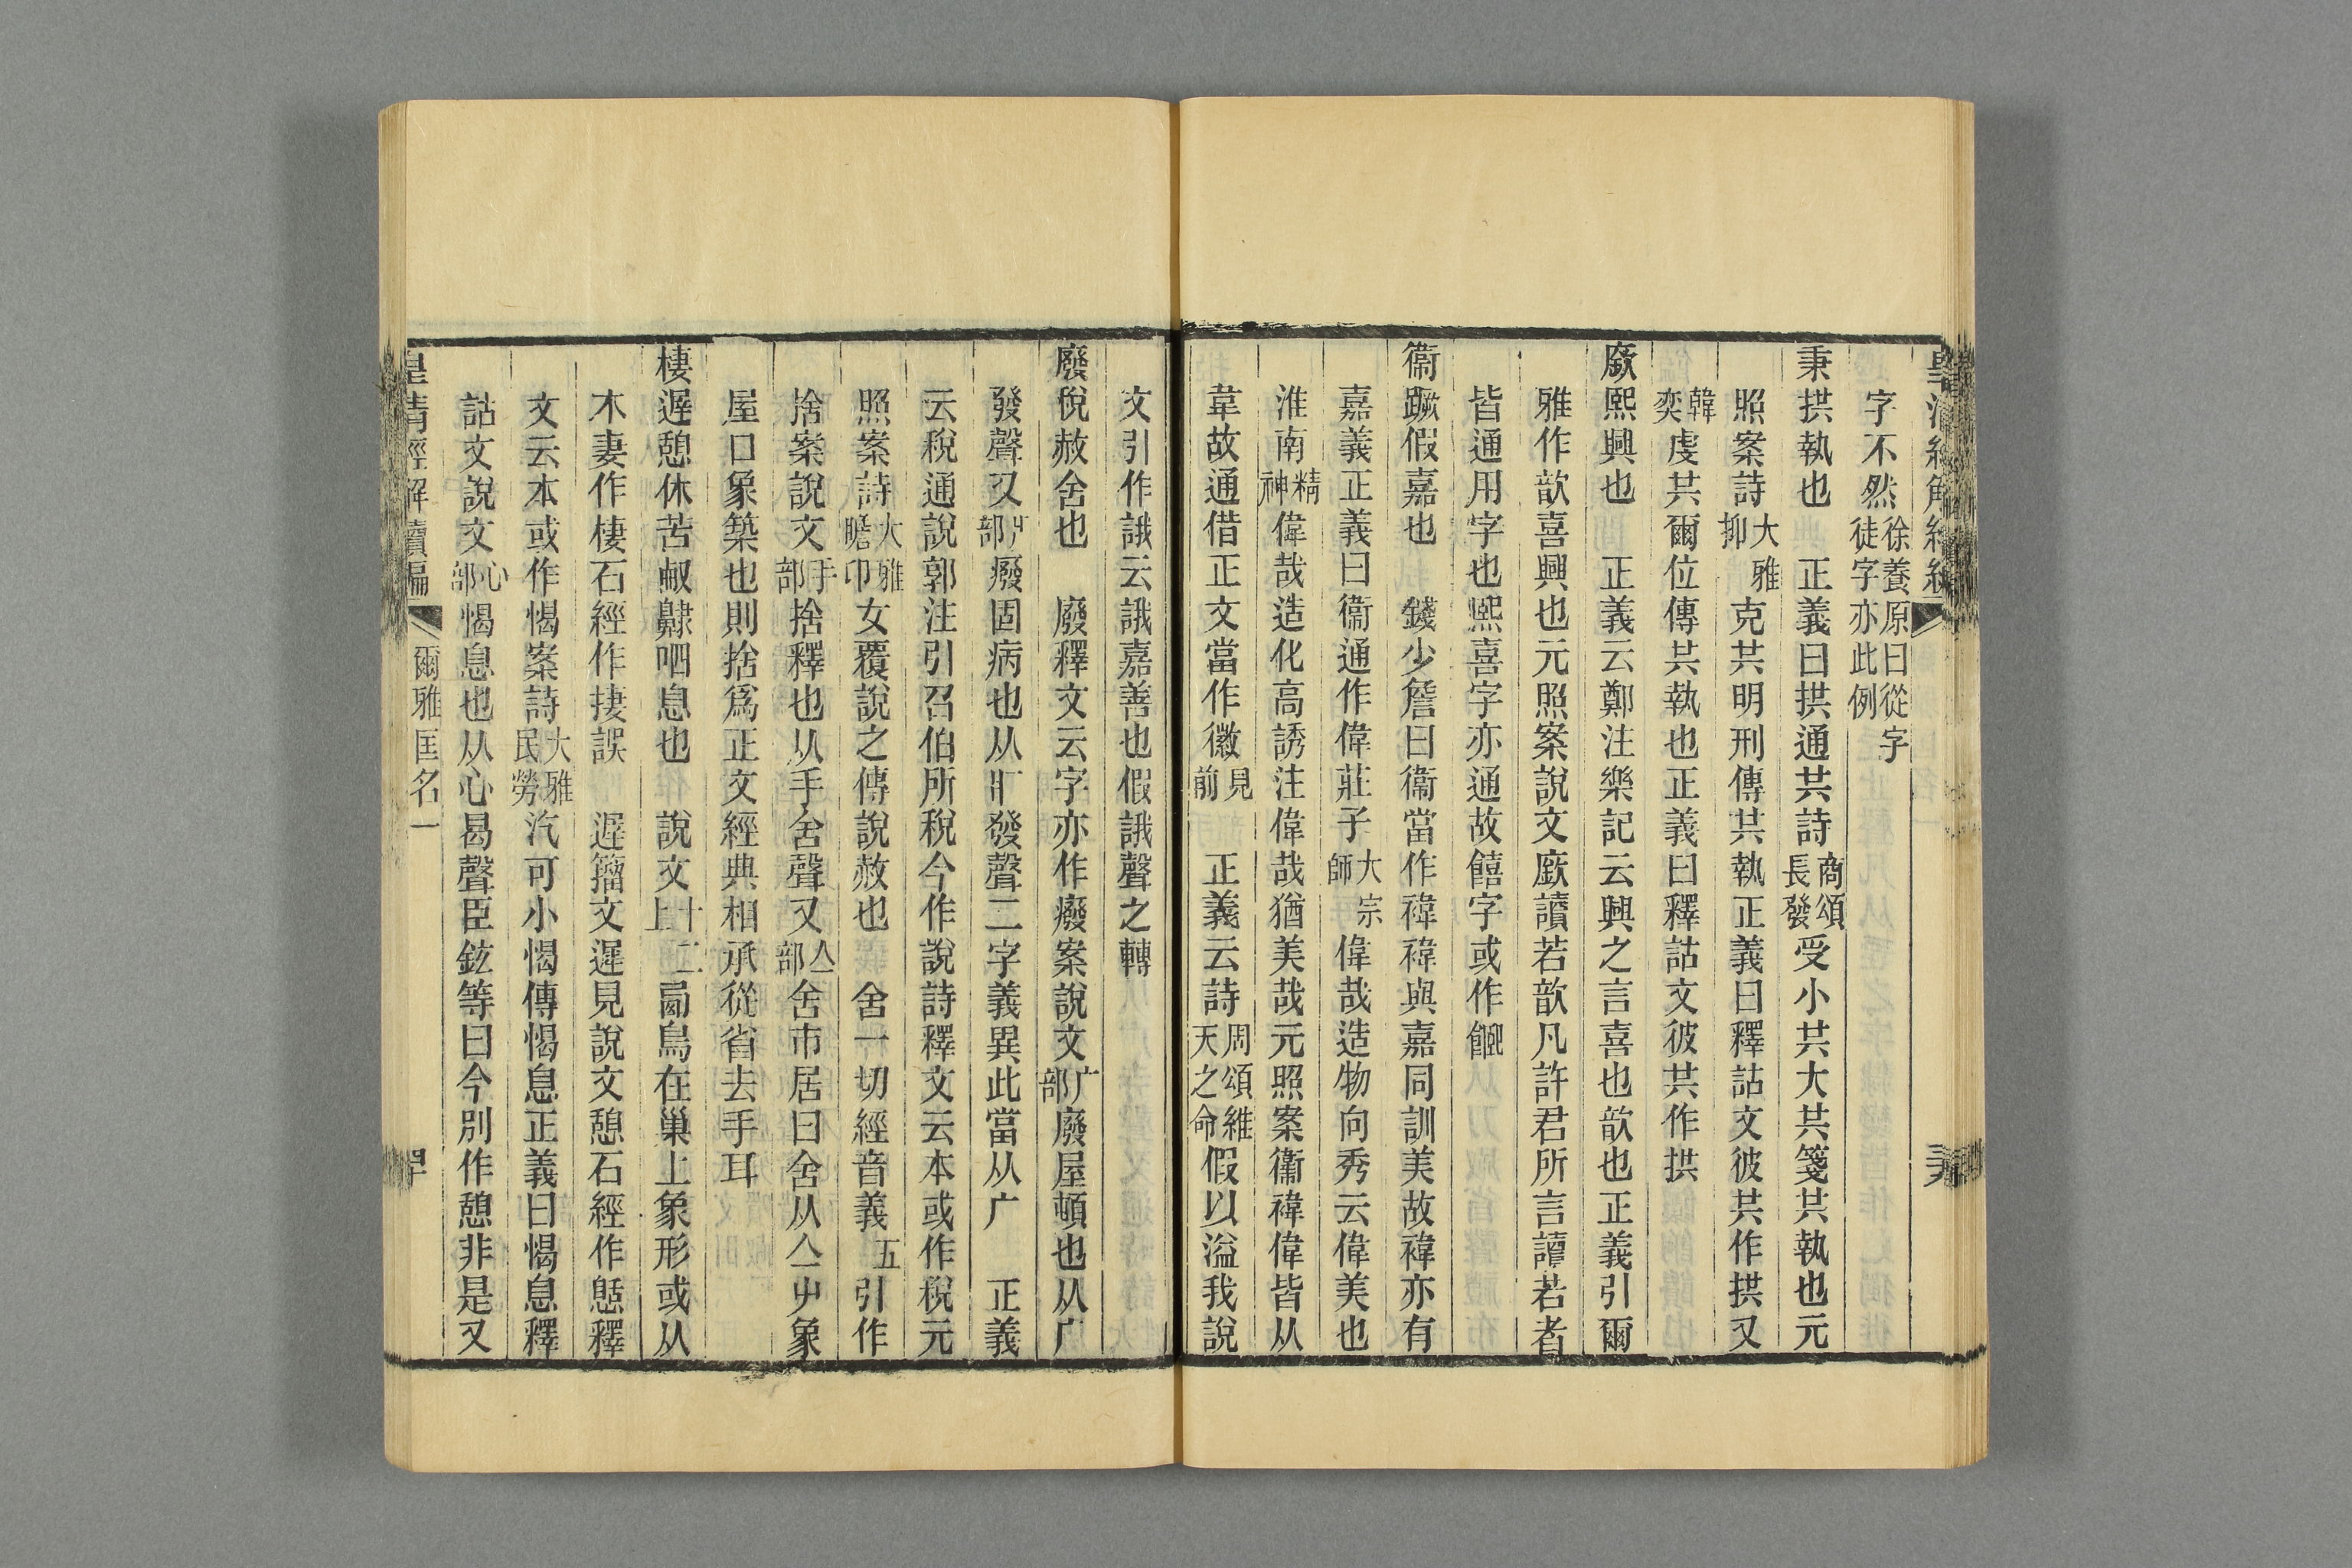 皇清經解續編
字不然徐養原曰從字徒字亦此例
秉拱執也　正義曰拱通共詩商頌長發受小共大共箋共執也元
照案詩大雅抑克共明刑傳共執正義曰釋詁文彼共作拱又
韓奕虔共爾位傳共執也正義曰釋詁文彼共作拱
廞熙興也　正義云鄭注樂記云興之言喜也歆也正義引爾
雅作歆喜興也元照案說文廞讀若歆凡許君所言讀若者
皆通用字也熙喜字亦通故饎字或作䭒
衞蹶假嘉也　錢少詹曰衞當作禕禕與嘉同訓美故禕亦有
嘉義正義曰衞通作偉莊子大宗師偉哉造物向秀云偉美也
淮南精神偉哉造化高誘注偉哉猶美哉元照案衞禕偉皆从
韋故通借正文當作徽見前　正義云詩周頌維天之命假以溢我說
文引作誐云誐嘉善也假誐聲之轉
廢稅赦舍也　廢釋文云字亦作癈案說文广部廢屋頓也从广
發聲又疒部癈固病也从疒發聲二字義異此當从广　正義
云稅通說郭注引召伯所稅今作說詩釋文云本或作稅元
照案詩大雅瞻卬女覆說之傳說赦也　舍一切經音義五引作
捨案說文手部捨釋也从手舍聲又亼部舍市居曰舍从亼屮象
屋口象築也則捨爲正文經典相承從省去手耳
棲遲憩休苦㕟齂呬息也　說文十二上㢴鳥在巢上象形或从
木妻作棲石經作捿誤　遟籀文遲見說文憩石經作憇釋
文云本或作愒案詩大雅民勞汽可小愒傳愒息正義曰愒息釋
詁文說文心部愒息也从心曷聲臣鉉等曰今別作憩非是又
皇清經解續編　爾雅匡名一